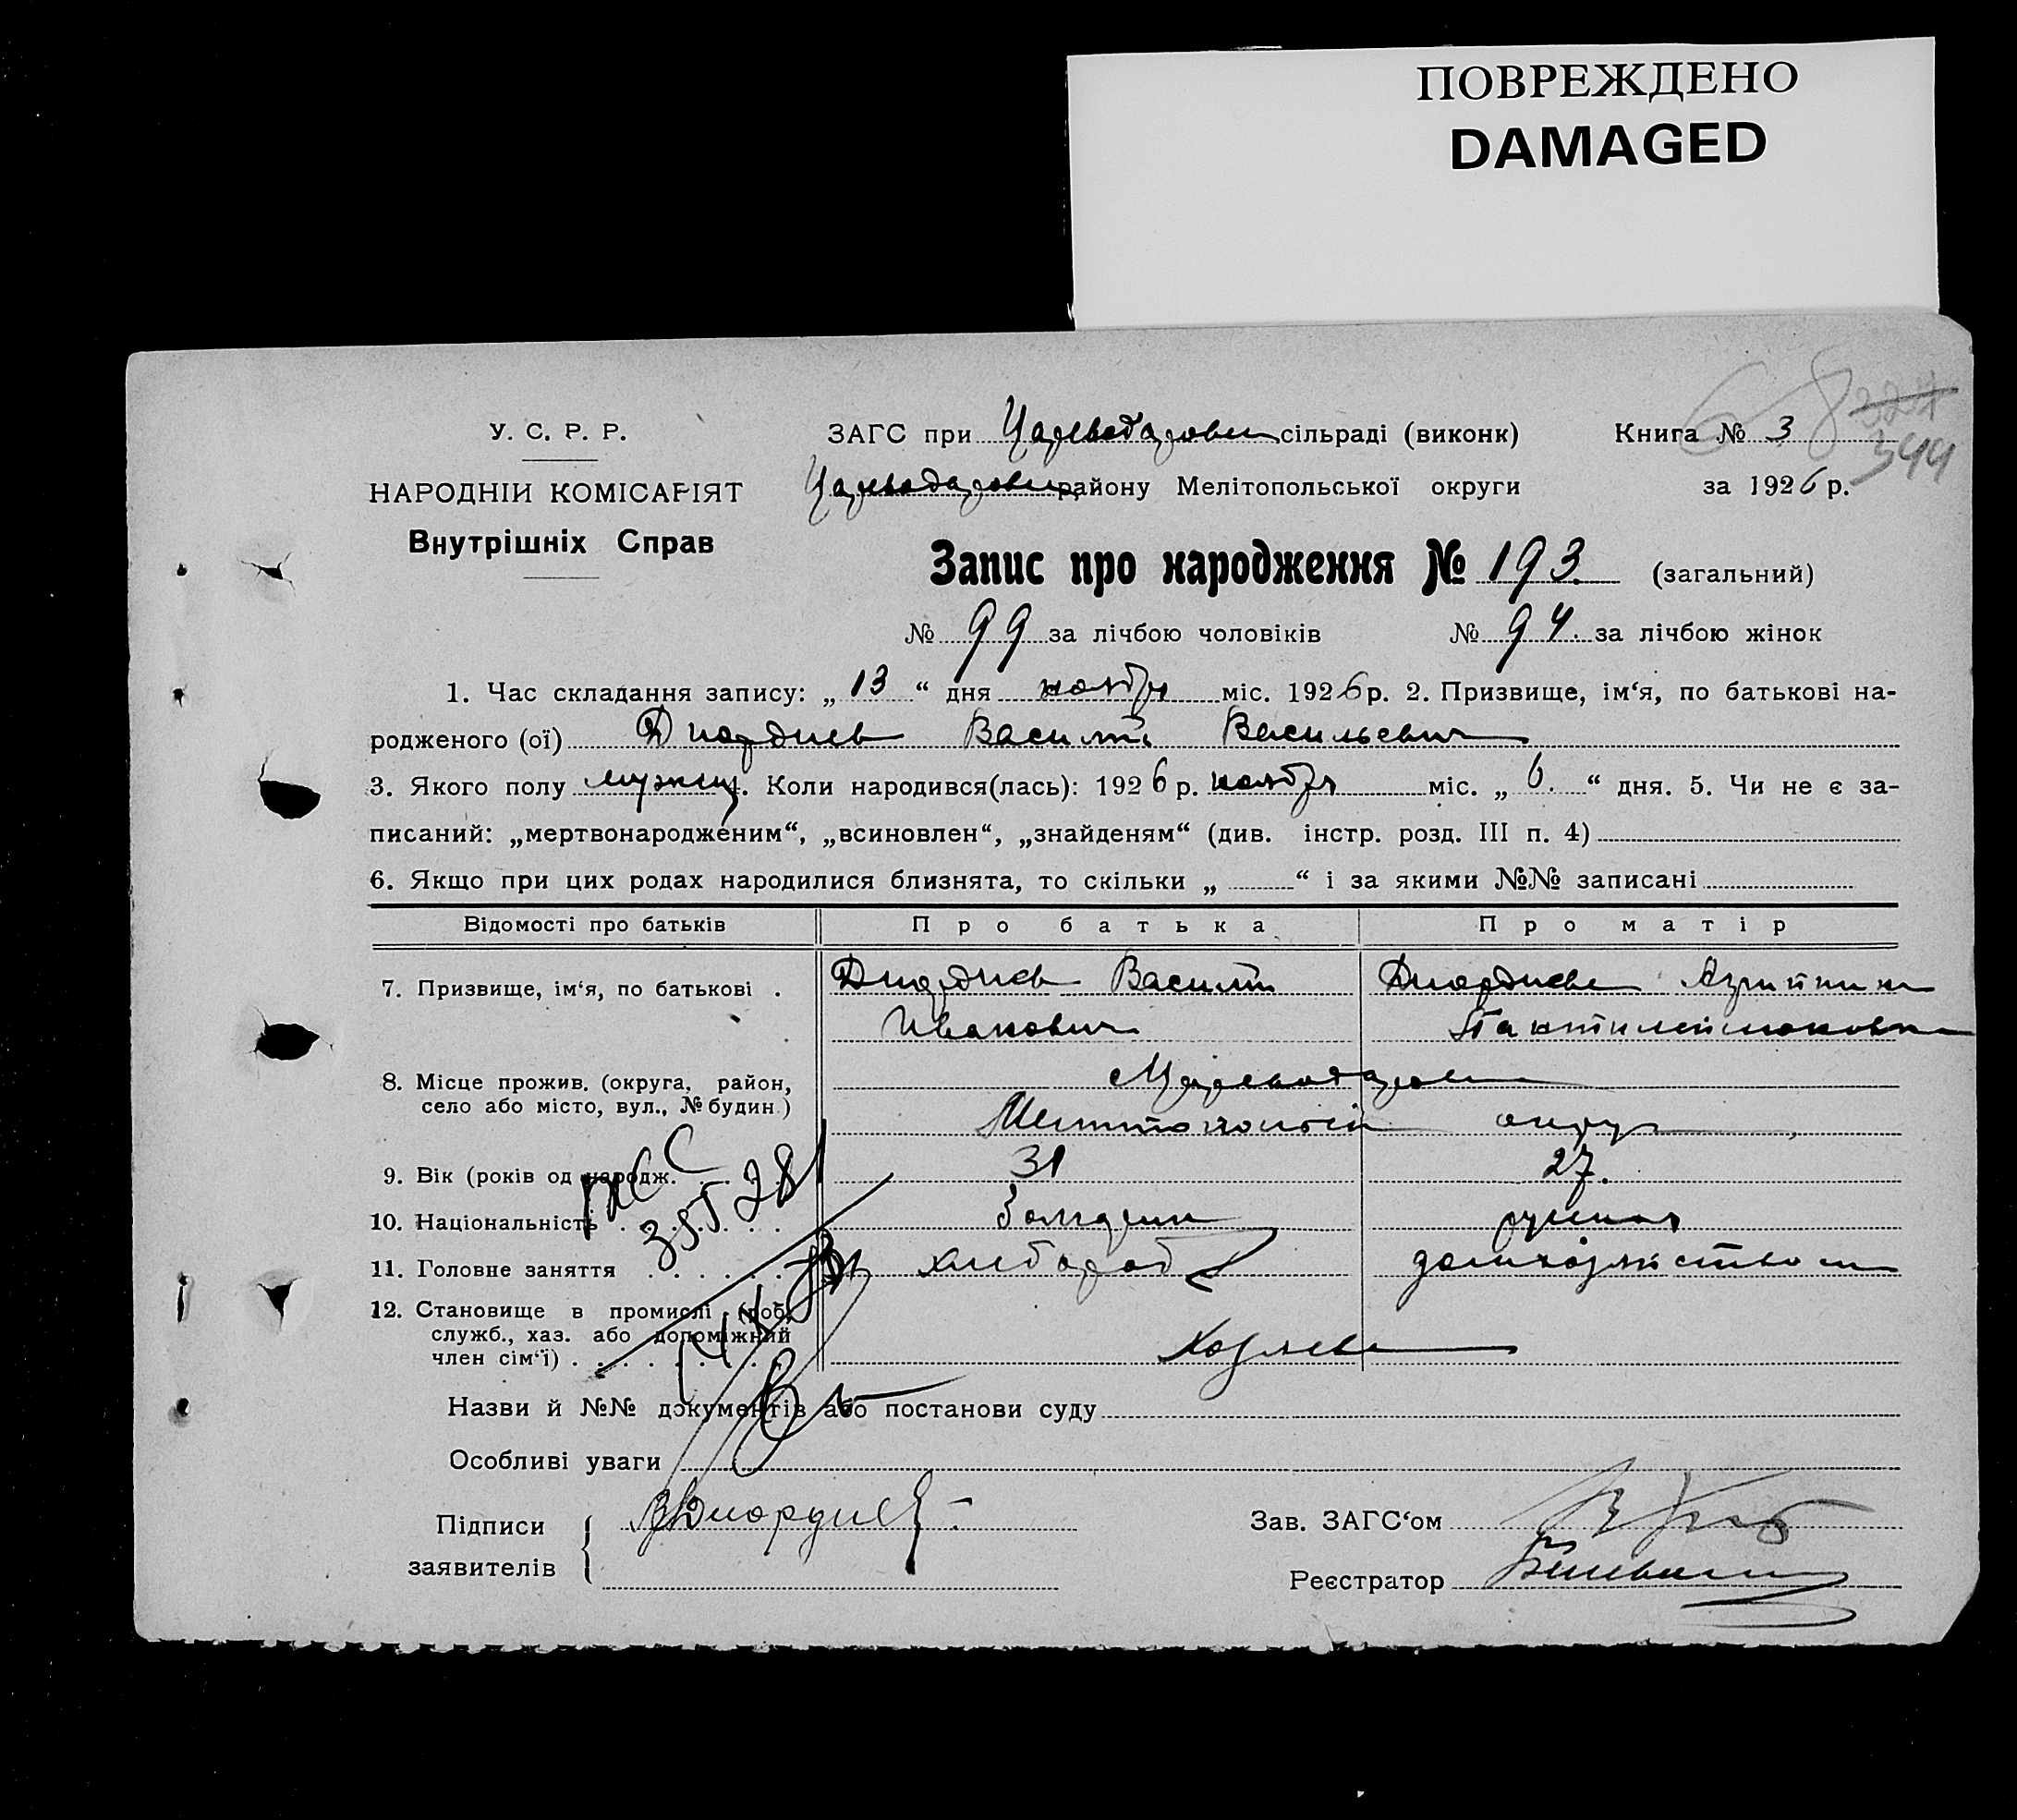 ПОВРЕЖДЕНО
DAMAGED
У. С. Р. Р.
НАРОДНІЙ КОМІСАРІЯТ
Внутрішніх Справ
ЗАГС при Царевода­ровск сільраді (виконк)
Книга № 3
68 327
344
району Мелітопольської округи
за 1926 р.
Запис про народження № 193 (загальний)
№ 99 за лічбою чоловіків № 94. за лічбою жінок
1. Час складання запису: „ 13 “ дня ноября міс. 1926 р. 2. Призвище, ім‘я, по батькові на-
родженого (ої) Диордиев Василий Васильевич
3. Якого полу мужск 4. Коли народився(лась): 1926 р. ноября міс. „ 6. “ дня. 5. Чи не є за-
писаний: „мертвонародженим“, „всиновлен“, „знайденям“ (див. інстр. розд. III п. 4)
6. Якщо при цих родах народилися близнята, то скільки „ “ і за якими №№ записані
Відомості про батьків Про батька Про матір
7. Призвище, ім‘я, по батькові . Диордиев Василий Диордиева
Иванович Пантилеймоновна
8. Місце прожив. (округа, район,
село або місто, вул., № будин.)
округ
9. Вік (років од народж. 31 27.
10. Національність Болгарин русская
11. Головне заняття хлебороб домхозяйством
12. Становище в промислі (роб.
служб., хаз. або допоміжний
член сім‘ї) Хозяев
Назви й №№ документів або постанови суду
Особливі уваги
Підписи ВДиордиев
заявителів
Зав. ЗАГС‘ом
Реєстратор